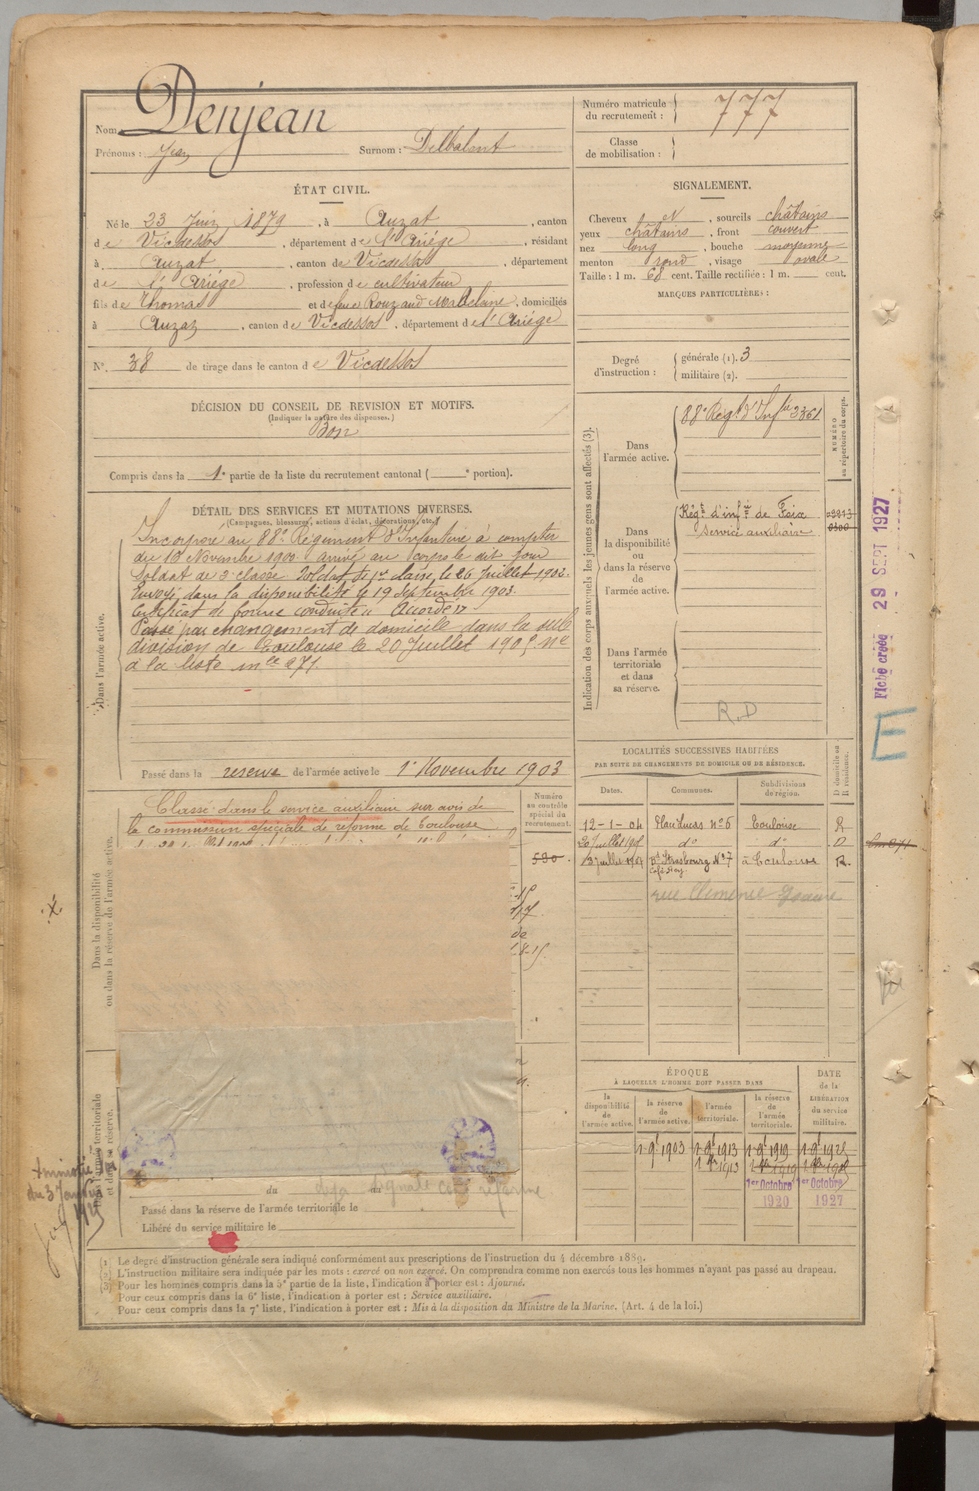 Nom Denjean
Prénoms : Jean Surnom :
Numéro matricule du recrutement : 777
Classe de mobilisation :
ÉTAT CIVIL.
Né le 23 Juin 1879, à Auzat, canton
de Vicdessos, département de l'Ariège, résidant
à Auzat, canton de Vicdessos, département
de l'Ariège, profession de cultivateur
fils de Thomas et de feue Rouzaud, domiciliés
à Auzat, canton de Vicdessos, département de l'Ariège
N°. 38 de tirage dans le canton de Vicdessos
DÉCISION DU CONSEIL DE REVISION ET MOTIFS.
(Indiquer la nature des dispenses.)
Bon
Compris dans la 1e partie de la liste du recrutement cantonal ( e portion).
DÉTAIL DES SERVICES ET MUTATIONS DIVERSES.
(Campagnes, blessures, actions d'éclat, décorations, etc.)
Incorporé au 88e Régiment d'Infanterie à compter
du Novembre 1900 arrivé au corps le dit jour
Soldat de classe. Soldat de 1re classe, le 26 Juillet 1902.
Envoyé dans la disponibilité le 19 Septembre 1903.
Certificat de bonne conduite "Accordé"
Passé par changement de domicile dans la sub
division de Toulouse le 20 Juillet 190
à la liste mle 271
Dans l'armée active.
Passé dans la réserve de l'armée active le 1r Novembre 1903
Classé dans le service auxiliaire sur avis de
la commission spéciale de réforme de Toulouse
Numéro au contrôle spécial du recrutement.
590
Dans la disponibilité ou dans la réserve de l'armée active.
territoriale et dans sa réserve.
Amnistié
du 3 Janvier
1925
du
Passé dans la réserve de l'armée territoriale le
Libéré du service militaire le
SIGNALEMENT.
Cheveux N, sourcils châtains
yeux châtains, front couvert
nez long, bouche moyenne
menton rond, visage ovale
Taille : 1 m. 68 cent. Taille rectifiée : 1 m. cent.
MARQUES PARTICULIÈRES :
Degré d'instruction : générale (1). 3
militaire (2).
Indication des corps auxquels les jeunes gens sont affectés (3).
NUMÉRO au répertoire du corps.
Dans l'armée active.
88e Régt d'Infie 3361
Dans la disponibilité ou dans la réserve de l'armée active.
Régt d'infie de Foix
Service auxiliaire
Dans l'armée territoriale et dans sa réserve.
R.D
LOCALITÉS SUCCESSIVES HABITÉES
PAR SUITE DE CHANGEMENTS DE DOMICILE OU DE RÉSIDENCE.
Dates. Communes. Subdivisions de région. D domicile ou R résidence.
12-1-04 n° 6 Toulouse R
20 Juillet d° d° D
Bd Strasbourg N° 7 à Toulouse R.
rue Clémence Isaure
ÉPOQUE
À LAQUELLE L'HOMME DOIT PASSER DANS
DATE de la LIBÉRATION du service militaire.
la disponibilité de l'armée active.
la réserve de l'armée active.
l'armée territoriale.
la réserve de l'armée territoriale.
1903 1913 1919
1913 1919
1er Octobre 1er Octobre
1920 1927
Fiche créée 29 SEPT 1927
E
(1) Le degré d'instruction générale sera indiqué conformément aux prescriptions de l'instruction du 4 décembre 1889.
(2) L'instruction militaire sera indiquée par les mots : exercé ou non exercé. On comprendra comme non exercés tous les hommes n'ayant pas passé au drapeau.
(3) Pour les hommes compris dans la 5e partie de la liste, l'indication à porter est : Ajourné.
Pour ceux compris dans la 6e liste, l'indication à porter est : Service auxiliaire.
Pour ceux compris dans la 7e liste, l'indication à porter est : Mis à la disposition du Ministre de la Marine. (Art. 4 de la loi.)